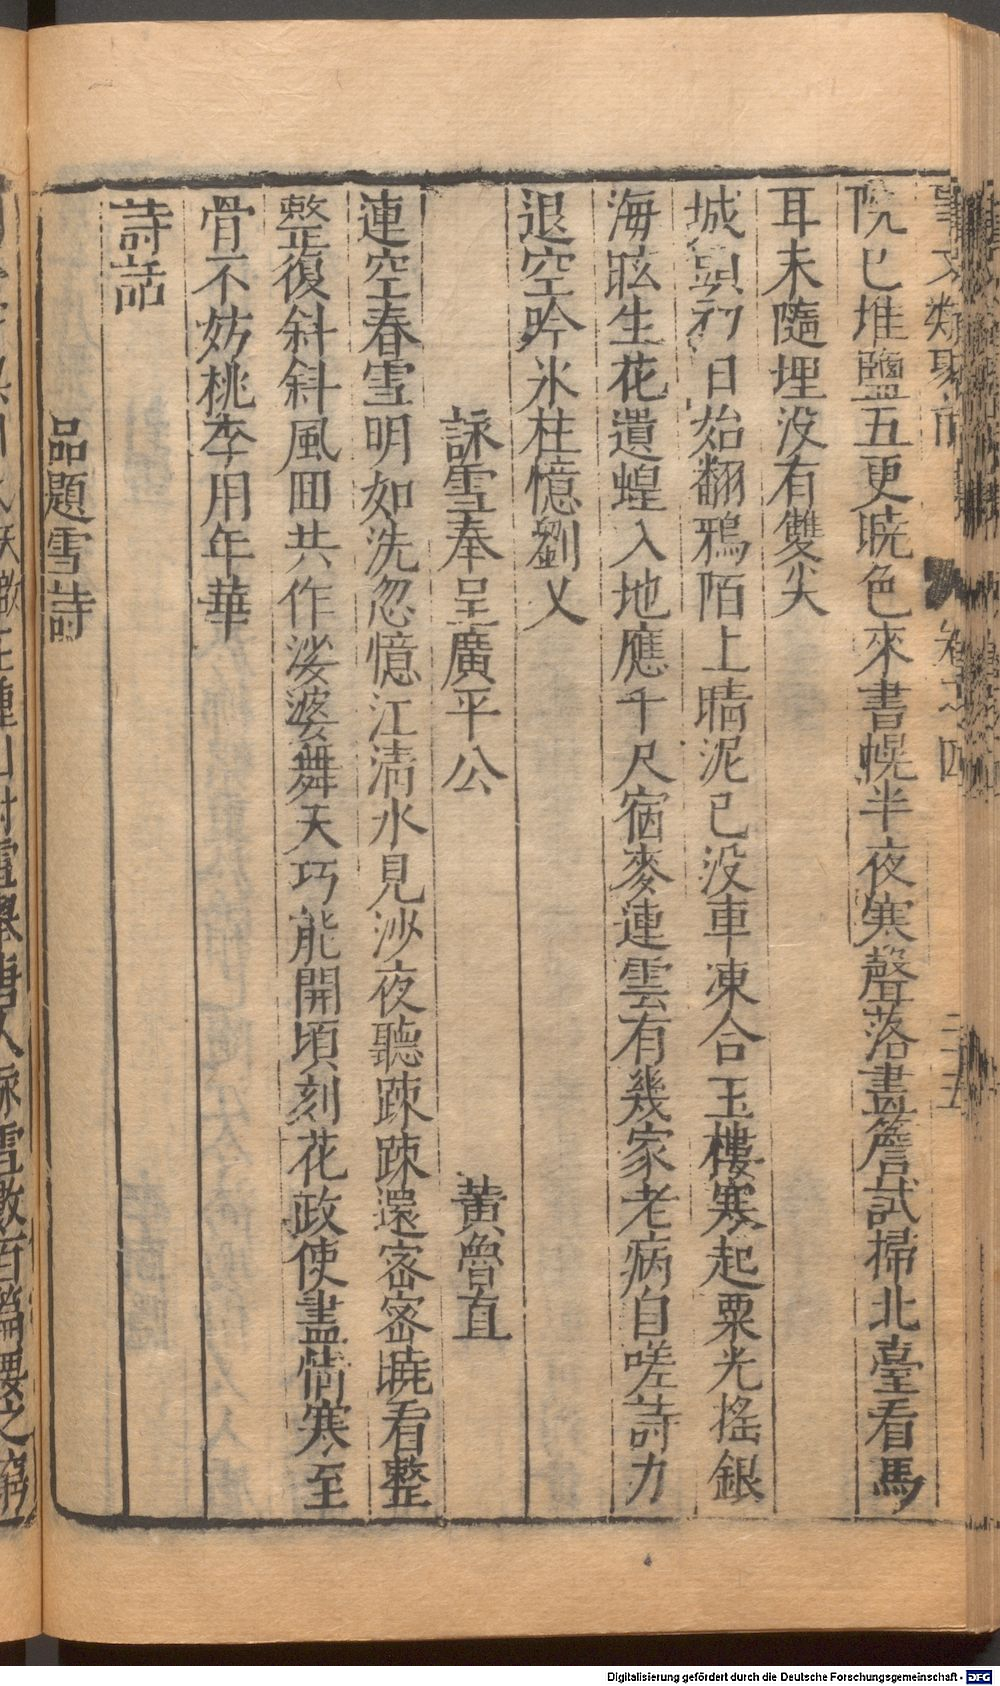 事文類聚前 卷之四 二十五
院已堆鹽五更曉色來書幌半夜寒聲落畫簷試掃北臺看馬
耳未隨埋没有雙尖
城頭初日始翻鴉陌上晴泥已没車凍合玉樓寒起粟光搖銀
海眩生花遺蝗入地應千尺宿麥連雲有幾家老病自嗟詩力
退空吟氷柱憶劉乂
詠雪奉呈廣平公 黄魯直
連空春雪明如洗忽憶江淸水見沙夜聽疎疎還密密曉看整
整復斜斜風囬共作婆婆舞天巧能開頃刻花政使盡情寒至
骨不妨桃李用年華
詩話
品題雪詩
唐人詠雪數百篇要之窮
Digitalisierung gefördert durch die Deutsche Forschungsgemeinschaft - DFG